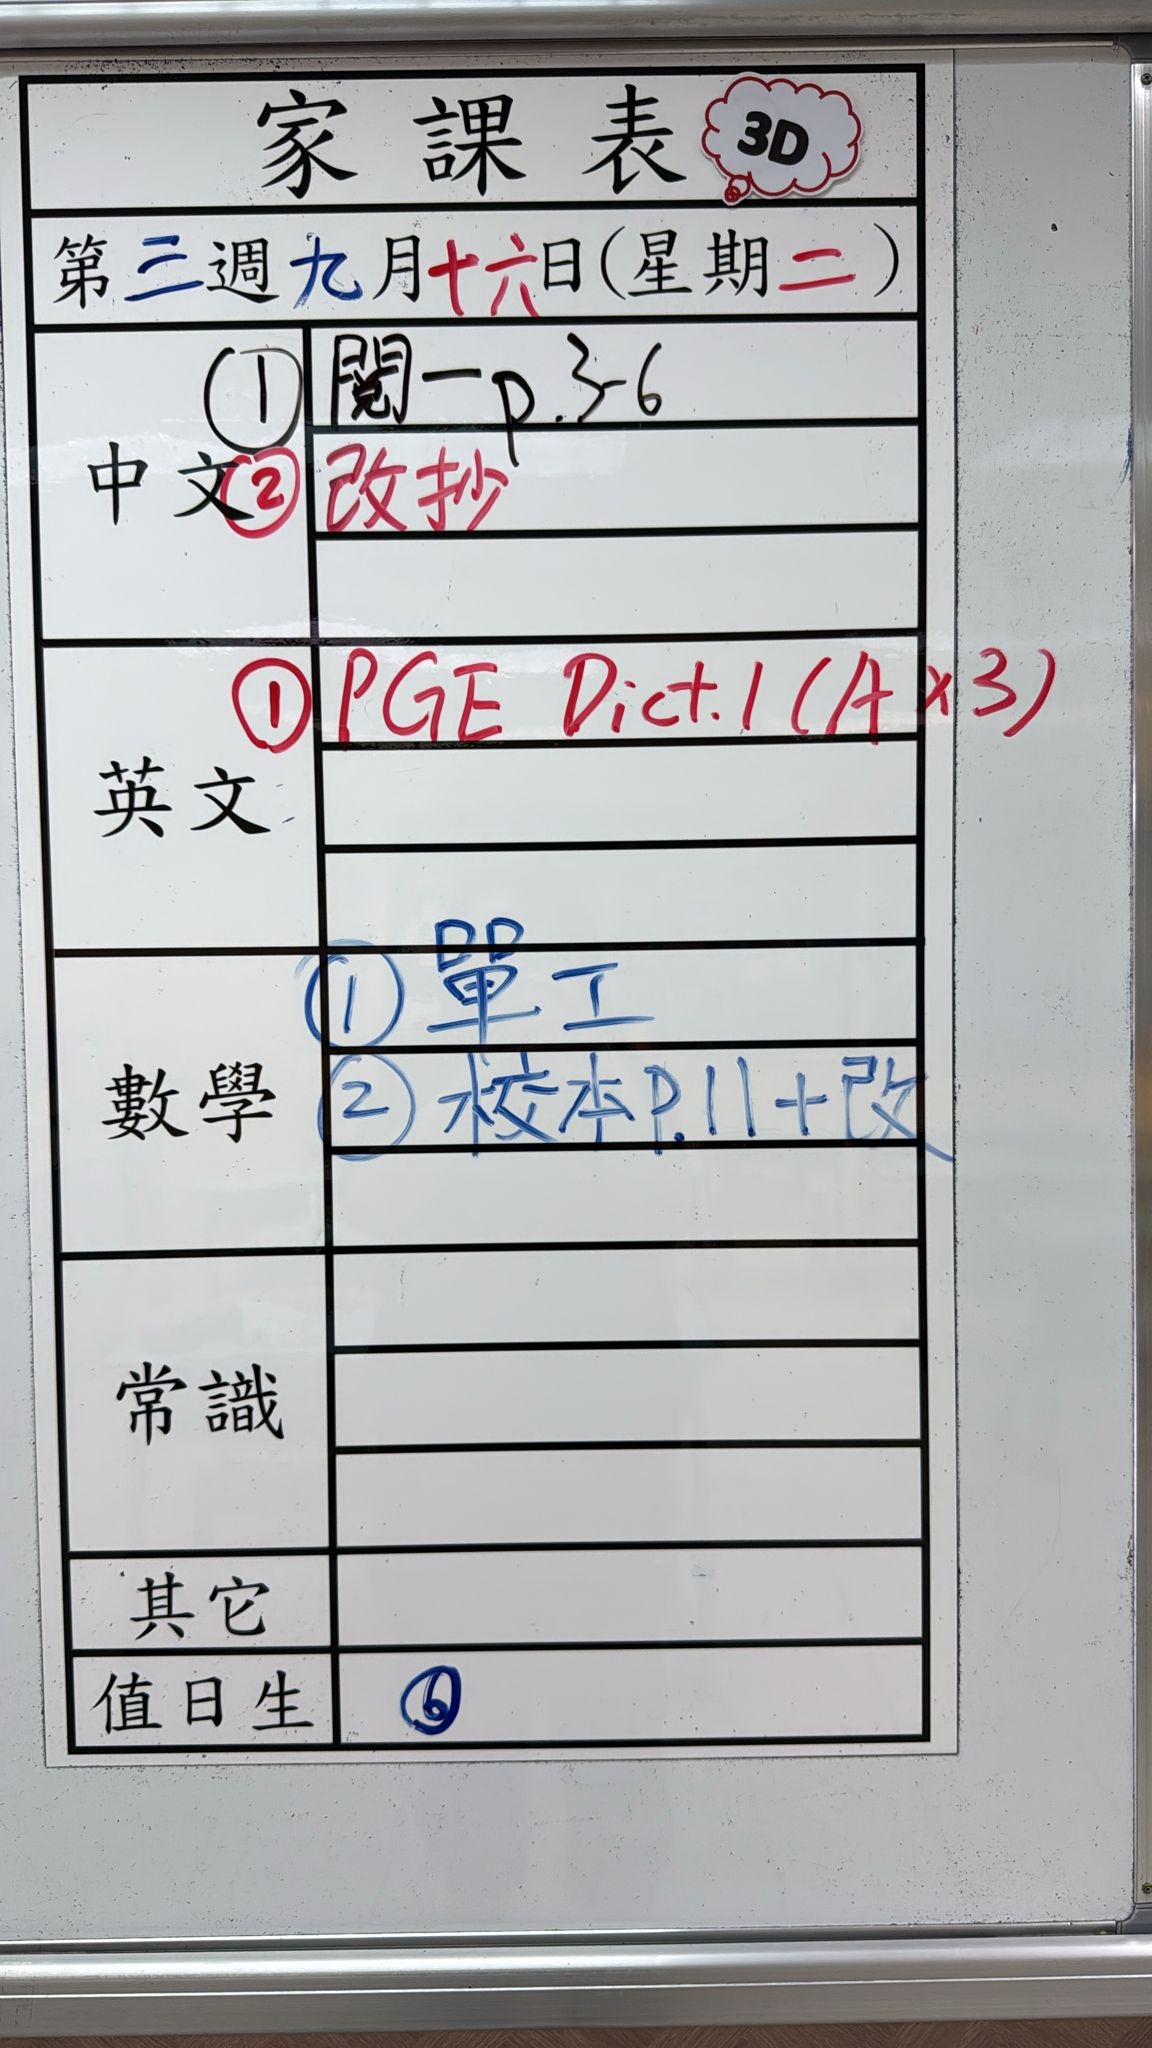 家課表 3D
第三週九月十六日(星期二)
中文
① 閱一p.3-6
② 改抄
英文
① PGE Dict.1 (A x3)
數學
① 單工
② 校本p.11+改
常識
其它
值日生 ⑥